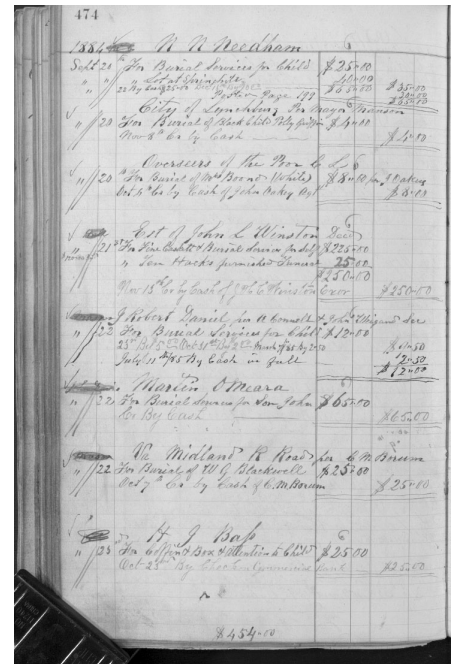 474
1884 N N Needham
Sept 20 For Burial Services for Child $25.00
" " " Lot at Springhill 40.00
22 By Cash $35.00 $65.00 $35.00
Page 199 30.00
$65.00
City of Lynchburg Per Mayor Manson
" 20 For Burial of Black Child $4.00
Nov 8th Cr by Cash $4.00
Overseers of the Poor
" 20 For Burial of Mrs Boond (White) $8.00 J Oakey
Oct 4th Cr by Cash of John Oakey Agt $8.00
Est of John L Winston Dec
" 21st For Fine Casket & Burial Services for Self $225.00
" Ten Hacks furnished Funeral 25.00
$250.00
Nov 15th Cr by Cash of Winston Exor $250.00
Robert Daniel
" 22 For Burial Services for Child $12.00
$9.50
July 11 /85 By Cash in full 2.50
$12.00
Martin O'Meara
" 22 For Burial Services for Son John $65.00
Cr By Cash $65.00
Va Midland R Road per C M Borum
" 22 For Burial of W G Blackwell $25.00
Oct 7th Cr by Cash of C. M Borum $25.00
H. J. Bass
" 23 For Coffin & Box & Attention to Child $25.00
Oct 23rd By Check on Bank $25.00
$454.00